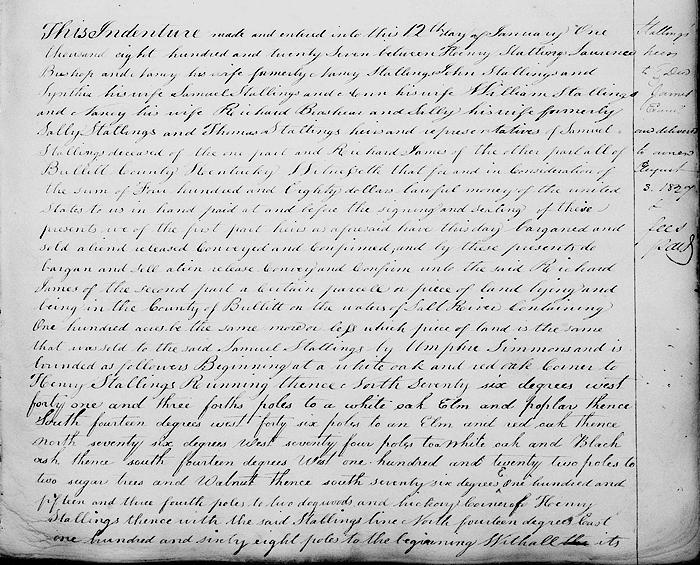 This Indenture made and entered into this 12th day of January One
thousand eight hundred and twenty seven between Henry Stallings Laurence
Bishop and Nancy his wife formerly Nancy Stallings John Stallings and
Synthia his wife Samuel Stallings and Ann his wife William Stallings
and Nancy his wife Richard Brashear and Sally his wife formerly
Sally Stallings and Thomas Stallings heirs and representatives of Samuel
Stallings deceased of the one part and Richard James of the other part all of
Bullitt County Kentucky Witnesseth that for and in Consideration of
the sum of Four hundred and Eighty dollars lawful money of the united
States to us in hand paid at and before the signing and sealing of these
presents we of the first part heirs as aforesaid have this day barganed and
sold aliend released Conveyed and Confirmed and by these presents do
bargan and sell alien release Convey and Confirm unto the said Richard
James of the second part a Certain parcele or piece of land lying and
being in the County of Bullitt on the waters of Salt River Containing
One hundred acres be the same more or less which piece of land is the same
that was sold to the said Samuel Stallings by Umphrie Simmons and is
bounded as followers Beginning at a white oak and red oak Corner to
Henry Stallings Running thence North Seventy six degrees west
forty one and three forths poles to a white oak Elm and poplar thence
South fourteen degrees west forty six poles to an Elm and red oak thence
north seventy six degrees West seventy four poles to a White oak and Black
ash thence south fourteen degrees West one hundred and twenty two poles to
two sugar trees and Walnut thence south seventy six degrees E one hundred and
fifteen and three fourth poles to two dogwoods and hickory Corner of Henry
Stallings thence with the said Stallings line North fourteen degrees East
one hundred and sixty eight poles to the beginning With all the its
Stallings
heirs
to Deed
James
Exam
and delivered
to owner
August
3. 1827
&
fees
paid